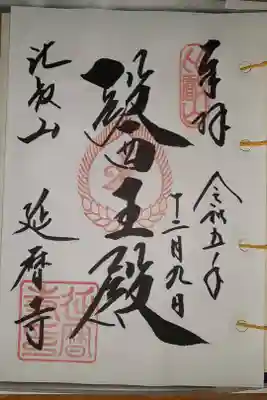 奉拝
令和五年
十二月九日
醫王殿
比叡山
延暦寺